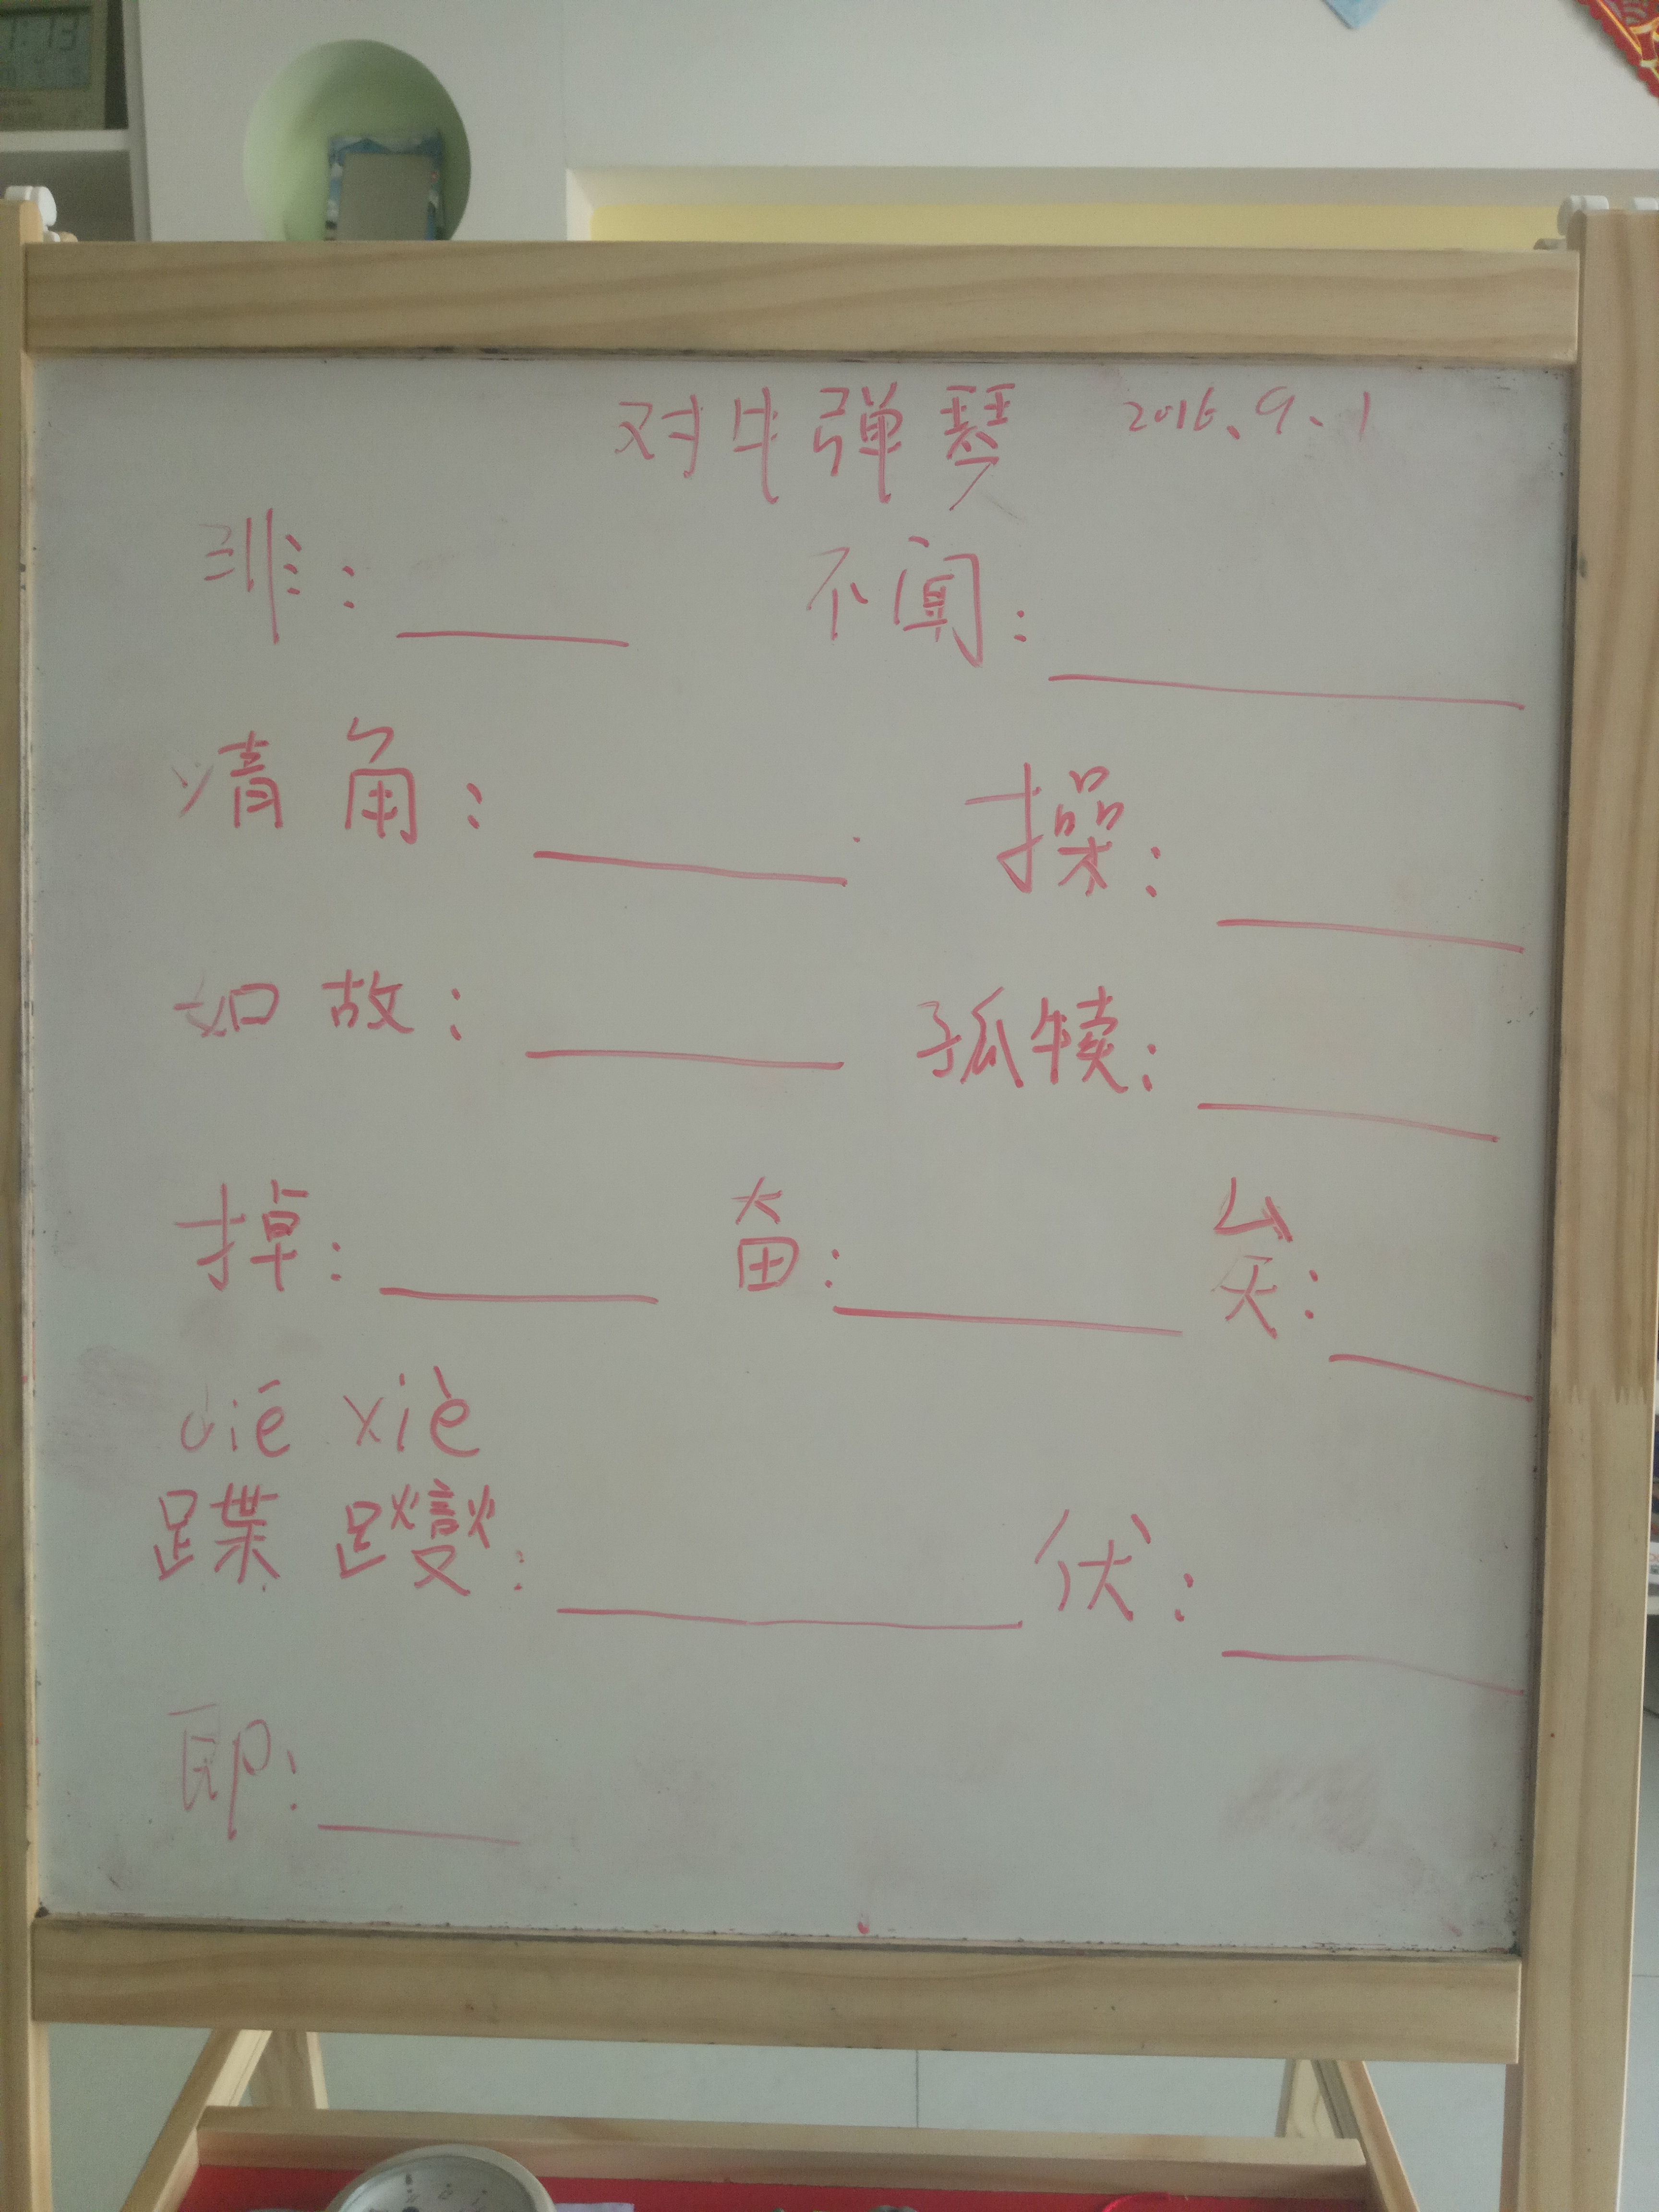 对牛弹琴 2016.9.1
非: 不闻:
清角: 操:
如故: 孤犊:
掉: 奋: 矣:
dié xiè
蹀躞: 伏:
即: